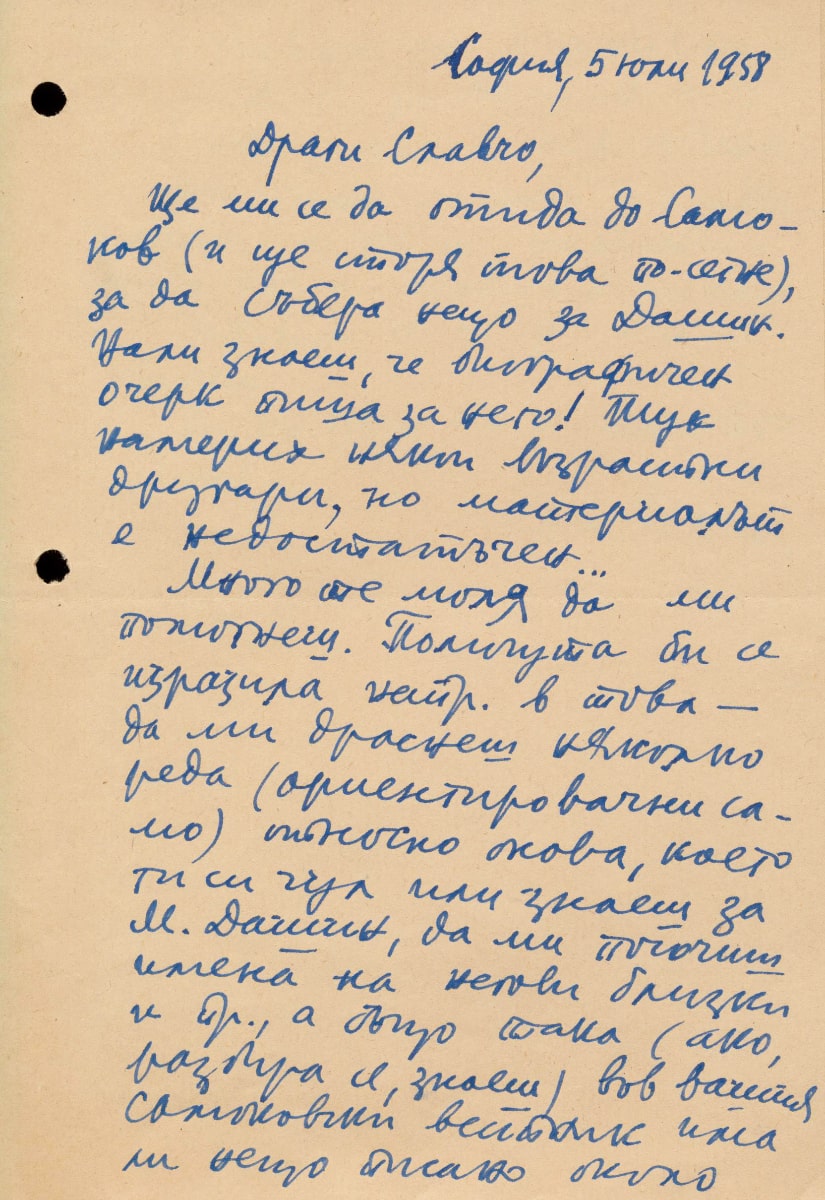 София, 5 юли 1958
Драги Славчо,
Ще ми се да отида до Само-
ков (и ще сторя това по-сетне),
за да събера нещо за Дашин.
Нали знаеш, че биографичен
очерк пиша за него! Тук
намерих някои възрастни
другари, но материалът
е недостатъчен...
Много те моля да ми
помогнеш. Помощта би се
изразила напр. в това —
да ми драснеш няколко
реда (ориентировачни са-
мо) относно онова, което
ти си чул или знаеш за
М. Дашин, да ми посочиш
имена на негови близки
и пр., а също така (ако,
разбира се, знаеш) във вашия
самоковски вестник има
ли нещо писано около